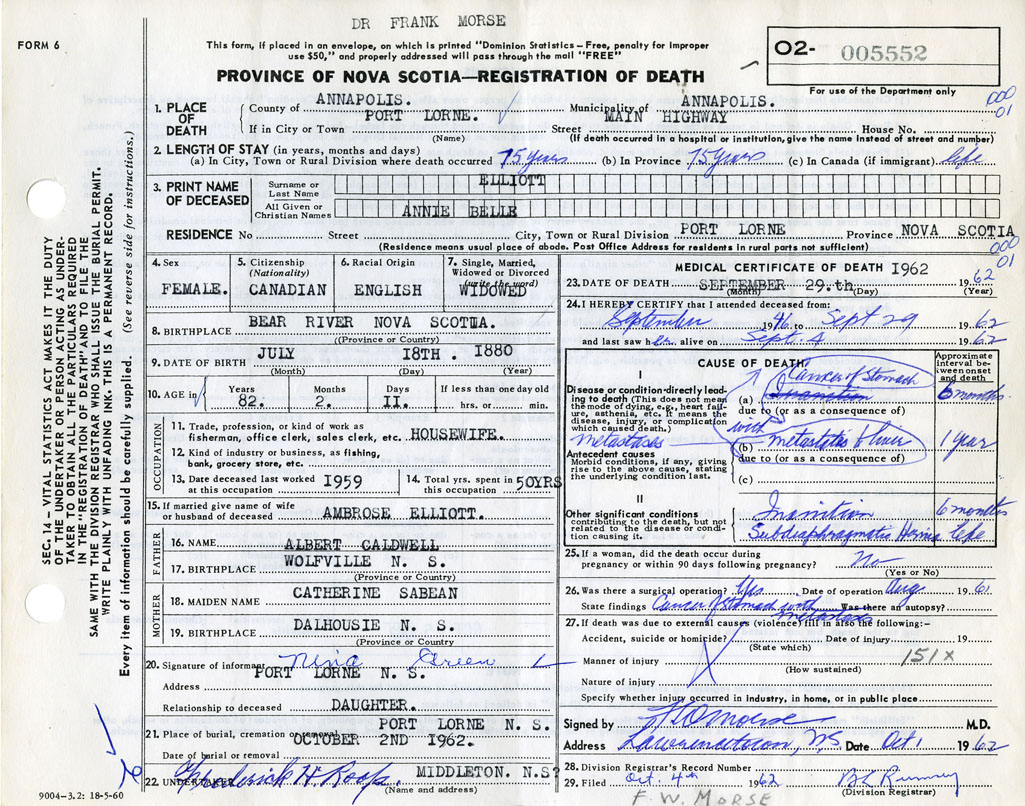 DR FRANK MORSE
FORM 6
This form, if placed in an envelope, on which is printed "Dominion Statistics—Free, penalty for improper
use $50," and properly addressed will pass through the mail "FREE"
O2- 005552
PROVINCE OF NOVA SCOTIA—REGISTRATION OF DEATH
For use of the Department only
000
01
1. PLACE OF DEATH
County of ANNAPOLIS. Municipality of ANNAPOLIS.
If in City or Town PORT LORNE. Street MAIN HIGHWAY House No.
(Name) (If death occurred in a hospital or institution, give the name instead of street and number)
2. LENGTH OF STAY (in years, months and days)
(a) In City, Town or Rural Division where death occurred 75 years (b) In Province 75 years (c) In Canada (if immigrant) life
3. PRINT NAME OF DECEASED
Surname or Last Name ELLIOTT
All Given or Christian Names ANNIE BELLE
RESIDENCE No Street City, Town or Rural Division PORT LORNE Province NOVA SCOTIA
(Residence means usual place of abode. Post Office Address for residents in rural parts not sufficient)
000
01
4. Sex FEMALE.
5. Citizenship (Nationality) CANADIAN
6. Racial Origin ENGLISH
7. Single, Married, Widowed or Divorced (write the word) WIDOWED
8. BIRTHPLACE BEAR RIVER NOVA SCOTIIA.
(Province or Country)
9. DATE OF BIRTH JULY I8TH. I880
(Month) (Day) (Year)
10. AGE in Years 82. Months 2. Days II. If less than one day old hrs. or min.
OCCUPATION
11. Trade, profession, or kind of work as
fisherman, office clerk, sales clerk, etc. HOUSEWIFE.
12. Kind of industry or business, as fishing,
bank, grocery store, etc.
13. Date deceased last worked at this occupation I959
14. Total yrs. spent in this occupation 50YRS
15. If married give name of wife
or husband of deceased AMBROSE ELLIOTT.
FATHER
16. NAME ALBERT CALDWELL
17. BIRTHPLACE WOLFVILLE N. S.
(Province or Country)
MOTHER
18. MAIDEN NAME CATHERINE SABEAN
19. BIRTHPLACE DALHOUSIE N. S.
(Province or Country)
20. Signature of informant Nina Green
Address PORT LORNE N. S.
Relationship to deceased DAUGHTER.
21. Place of burial, cremation or removal PORT LORNE N. S.
Date of burial or removal OCTOBER 2ND I962.
22. UNDERTAKER Frederick H Roop. MIDDLETON. N.S?
(Name and address)
9004-3.2: 18-5-60
SEC. 14—VITAL STATISTICS ACT MAKES IT THE DUTY
OF THE UNDERTAKER OR PERSON ACTING AS UNDER-
TAKER TO OBTAIN ALL THE PARTICULARS REQUIRED
IN THE "REGISTRATION OF DEATH" AND TO FILE THE
SAME WITH THE DIVISION REGISTRAR WHO SHALL ISSUE THE BURIAL PERMIT.
WRITE PLAINLY WITH UNFADING INK. THIS IS A PERMANENT RECORD.
Every item of information should be carefully supplied. (See reverse side for instructions.)
MEDICAL CERTIFICATE OF DEATH I962
23. DATE OF DEATH SEPTEMBER 29.th 1962
(Month) (Day) (Year)
24. I HEREBY CERTIFY that I attended deceased from:
September 1946 to Sept 29 1962
and last saw her alive on Sept. 4 1962
CAUSE OF DEATH
Approximate interval between onset and death
I
Disease or condition directly lead-
ing to death (This does not mean
the mode of dying, e.g., heart fail-
ure, asthenia, etc. It means the
disease, injury, or complication
which caused death.)
(a) Cancer of Stomach Inanition 6 months
due to (or as a consequence of)
with
metastases
(b) metastatis of liver 1 year
due to (or as a consequence of)
Antecedent causes
Morbid conditions, if any, giving
rise to the above cause, stating
the underlying condition last.
(c)
II
Other significant conditions
contributing to the death, but not
related to the disease or condi-
tion causing it.
Inanition 6 months
Subdiaphragmatic Hernia life
25. If a woman, did the death occur during
pregnancy or within 90 days following pregnancy? No
(Yes or No)
26. Was there a surgical operation? Yes Date of operation Aug. 1961
State findings Cancer of Stomach with metastases Was there an autopsy?
27. If death was due to external causes (violence) fill in also the following:—
Accident, suicide or homicide? Date of injury 19
(State which)
Manner of injury 151X
(How sustained)
Nature of injury
Specify whether injury occurred in industry, in home, or in public place
Signed by F W Morse M.D.
Address Lawrencetown, NS Date Oct 1 1962
28. Division Registrar's Record Number
29. Filed Oct. 4th 1962
(Division Registrar)
F. W. MORSE